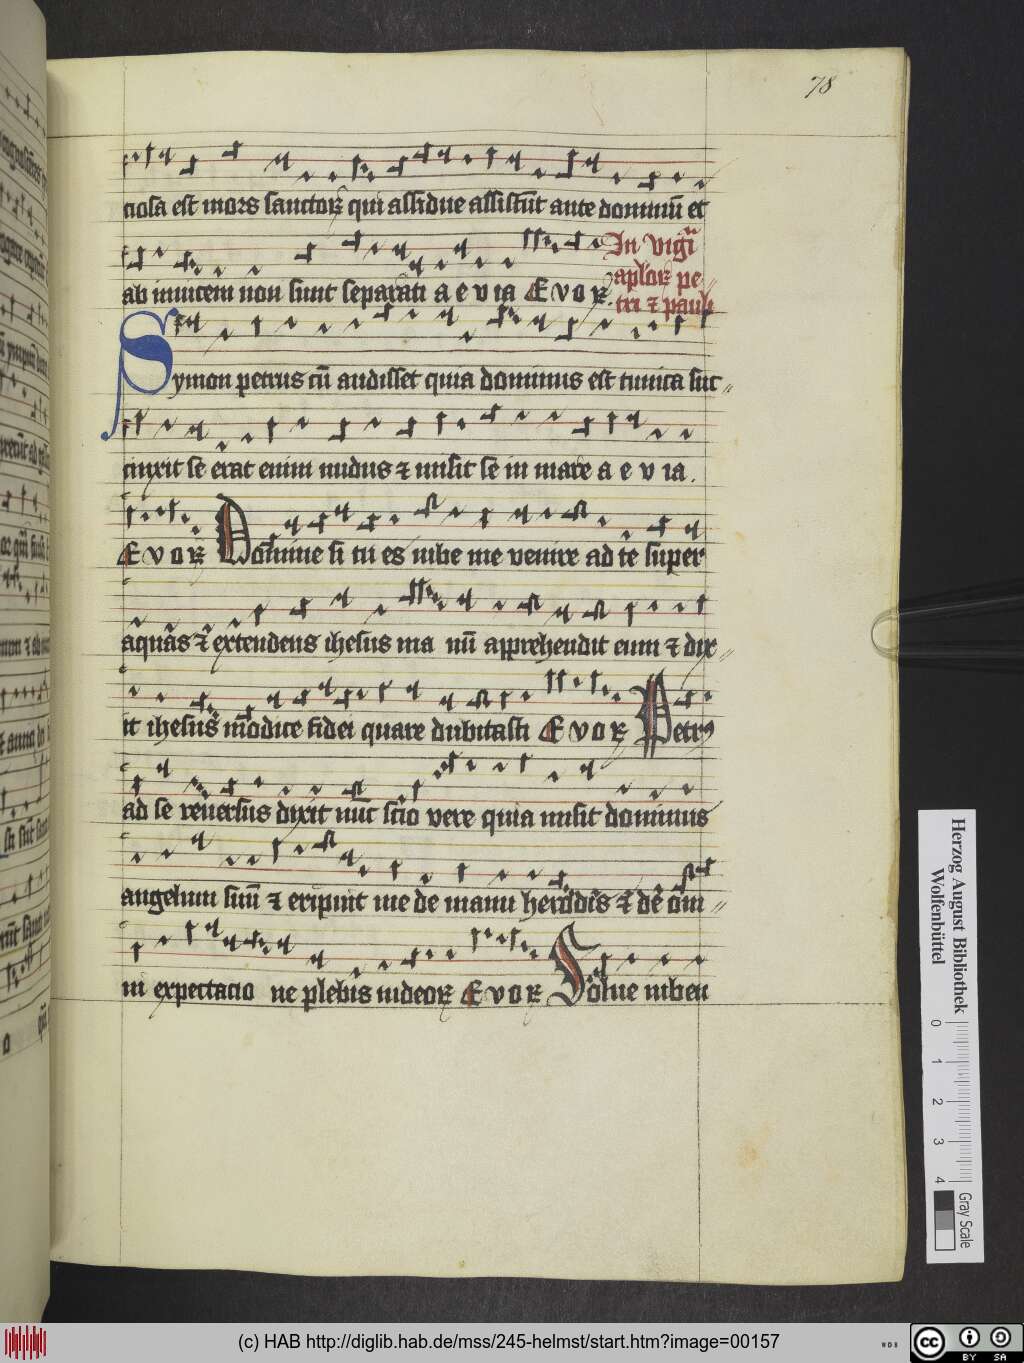 78
ciosa est mors sanctoꝝ qui assidue assistūt ante dominū et
ab inuicem non sunt separati a e v ia E v o ꝝ
In vigł̄ia
aplõꝝ pe
tri ⁊ pauli
Symon petrus cū audisset quia dominus est tunica suc〃
cinxit se erat enim nudus ⁊ misit se in mare a e v ia.
E v o ꝝ Domine si tu es iube me venire ad te super
aquas ⁊ extendens ihesus ma nū apprehendit eum ⁊ dix〃
it ihesus modice fidei quare dubitasti E v o ꝝ Petrꝰ
ad se reuersus dixit nūc scio vere quia misit dominus
angelum suū ⁊ eripuit me de manu herodis ⁊ de om〃
ni expectacio ne plebis iudeoꝝ E v o ꝝ Solue iuben
Herzog August Bibliothek
Wolfenbüttel
0 1 2 3 4
Gray Scale
(c) HAB http://diglib.hab.de/mss/245-helmst/start.htm?image=00157
WDB
cc BY SA